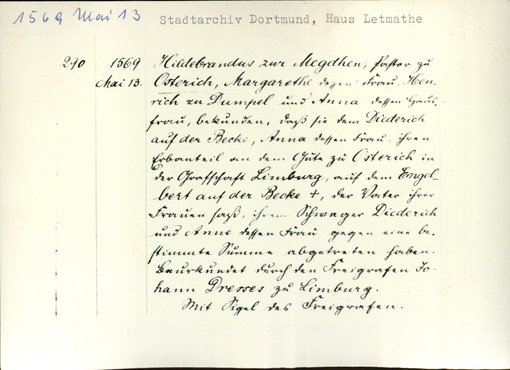 1569 Mai 13
Stadtarchiv Dortmund, Haus Letmathe
240 1569 Hildebrandus zur Megdhen, Pastor zu
Mai 13. Osterich, Margarethe dessen Frau, Hen-
rich zu Dumpel und Anna dessen Haus-
frau, bekunden, daß sie dem Diederich
auf der Becke, Anna dessen Frau, ihren
Erbanteil an dem Gute zu Osterich in
der Grafschaft Limburg, auf dem Engel-
bert auf der Becke +, der Vater ihrer
Frauen saß, ihrem Schwager Diederich
und Anne dessen Frau gegen eine be-
stimmte Summe abgetreten haben.
Beurkundet durch den Freigrafen Jo-
hann Dresses zu Limburg.
Mit Sigel des Freigrafen.